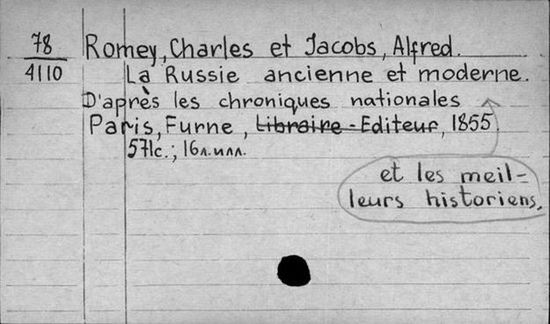 78
4110
Romey, Charles et Jacobs, Alfred.
La Russie ancienne et moderne.
D'après les chroniques nationales
et les meil-
leurs historiens.
Paris, Furne, Libraire-Editeur, 1855
571c.; 16л.илл.